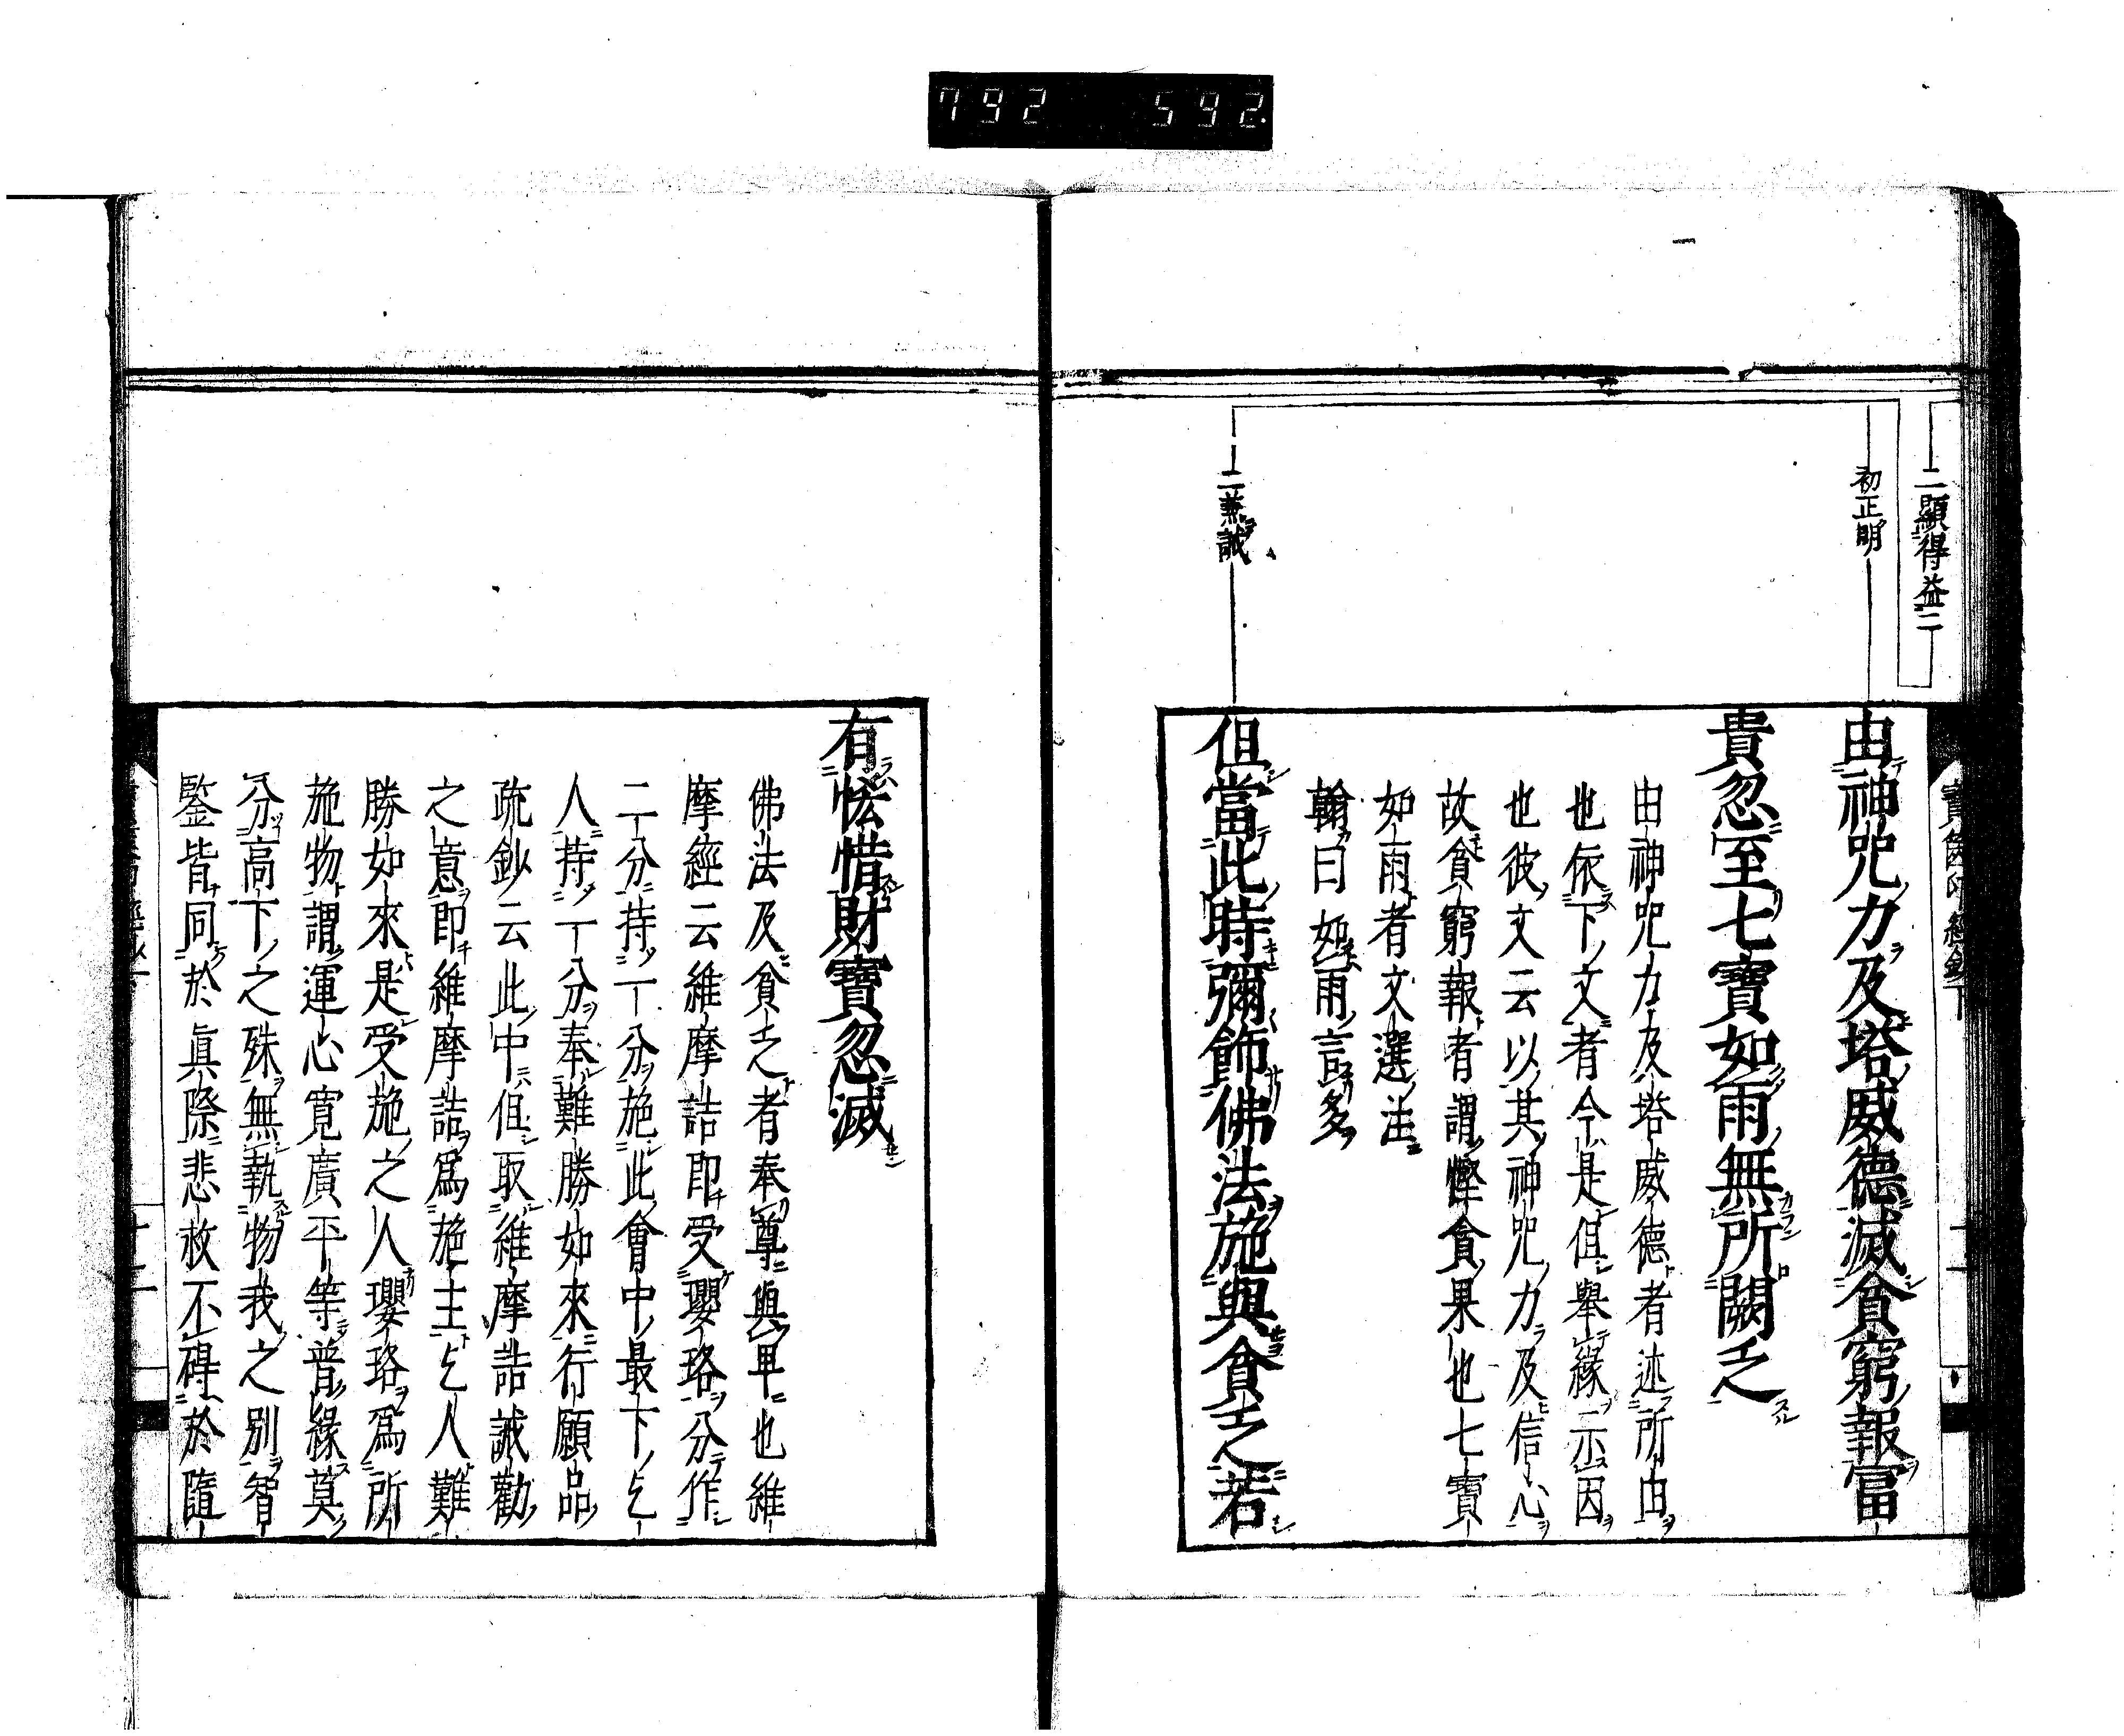 792 592
二顯得益二
初正明
由神咒力及塔威德滅貪窮報富
貴忽至七寶如雨無所闕乏
由神咒力及塔威德者述所由
也依下文者今是但舉緣示因
也彼文云以其神咒力及信心
故貪窮報者謂慳貪果也七寶
如雨者文選注
翰曰如雨言多
二兼誡
但當此時彌飾佛法施與貪乏若
有恡惜財寶忽滅
佛法及貪乏者奉尊與卑也維
摩經云維摩詰即受瓔珞分作
二分持一分施此會中最下乞
人持一分奉難勝如來行願品
疏鈔云此中但取維摩詰誡勸
之意即維摩詰爲施主乞人難
勝如來是受施之人瓔珞爲所
施物謂運心寛廣平等普緣莫
分高下之殊無執物我之別智
鍳皆同於眞際悲救不碍於隨